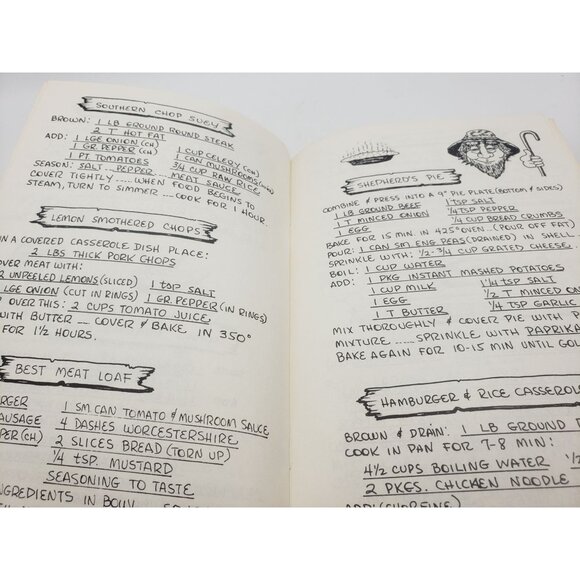 SOUTHERN CHOP SUEY
BROWN: 1 LB GROUND ROUND STEAK
2 T HOT FAT
ADD: 1 LGE ONION (CH) 1 CUP CELERY (CH)
1 GR. PEPPER (CH) 1 CAN MUSHROOMS
1 PT TOMATOES 3/4 CUP RAW RICE
SEASON: SALT .. PEPPER ... MEAT SAUCE
COVER TIGHTLY ..... WHEN FOOD BEGINS TO
STEAM, TURN TO SIMMER .... COOK FOR 1 HOUR.
LEMON SMOTHERED CHOPS
IN A COVERED CASSEROLE DISH PLACE:
2 LBS THICK PORK CHOPS
OVER MEAT WITH:
2 UNPEELED LEMONS (SLICED) 1 tSP SALT
1 LGE ONION (CUT IN RINGS) 1 GR. PEPPER (IN RINGS)
OVER THIS: 2 CUPS TOMATO JUICE,
WITH BUTTER ... COVER & BAKE IN 350°
FOR 1 1/2 HOURS.
BEST MEAT LOAF
RGER 1 SM. CAN TOMATO & MUSHROOM SAUCE
AUSAGE 4 DASHES WORCESTERSHIRE
PER (CH) 2 SLICES BREAD (TORN UP)
1/4 tSP. MUSTARD
SEASONING TO TASTE
GREDIENTS IN
SHEPHERD'S PIE
COMBINE & PRESS INTO A 9" PIE PLATE (BOTTOM & SIDES)
1 LB GROUND BEEF 1 tSP SALT
1 T MINCED ONION 1/4 tSP PEPPER
1 EGG 1/4 CUP BREAD CRUMBS
BAKE FOR 15 MIN. IN 425° OVEN. (POUR OFF FAT)
POUR: 1 CAN SM ENG PEAS (DRAINED) IN SHELL
SPRINKLE WITH: 1/2-3/4 CUP GRATED CHEESE.
BOIL: 1 CUP WATER
ADD: 1 PKG INSTANT MASHED POTATOES
1 CUP MILK 1 1/4 tSP SALT
1 EGG 1/2 T MINCED ON
1 T BUTTER 1/4 tSP GARLIC
MIX THOROUGHLY & COVER PIE WITH P
MIXTURE ..... SPRINKLE WITH PAPRIKA
BAKE AGAIN FOR 10-15 MIN UNTIL GOL
HAMBURGER & RICE CASSEROL
BROWN & DRAIN: 1 LB GROUND
COOK IN PAN FOR 7-8 MIN:
4 1/2 CUPS BOILING WATER 1/2
2 PKGS. CHICKEN NOODLE